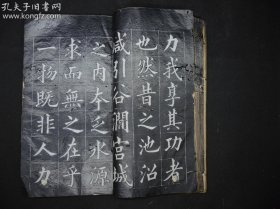 孔夫子旧书网
力我享其功者
也然昔之池沼
咸引谷澗宫城
之内本乏水源
求而無之在乎
一物既非人力